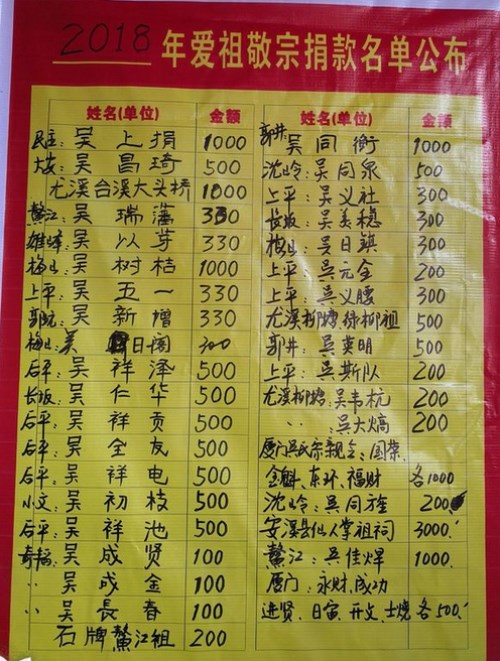 2018年爱祖敬宗捐款名单公布
姓名(单位) 金额
民主:吴上捐 1000
大坂:吴昌琦 500
尤溪台溪大头桥 1000
鳌江:吴瑞藩 330
雄峰:吴以芽 330
梅山:吴树桔 1000
上平:吴五一 330
郭坑:吴新增 330
梅山:吴日阁 300
后平:吴祥泽 500
长坂:吴仁华 500
后平:吴祥贡 500
后平:吴全友 500
后平:吴祥电 500
小文:吴初枝 500
后平:吴祥池 500
吴成贤 100
〃 吴成金 100
〃 吴長春 100
石牌鳌江祖 200
姓名(单位) 金额
郭井:吴同衡 1000
沈岭:吴同泉 500
上平:吴义社 300
长坂:吴美穗 300
梅山:吴日镇 300
上平:吴元全 200
上平:吴义腰 300
尤溪柳塘绿柳祖 500
郭井:吴英明 500
上平:吴斯队 200
尤溪柳塘:吴韦杭 200
〃 :吴大熇 200
厦门吴氏宗亲会:国荣、
金魁、东环、福财 各1000
沈岭:吴同旌 200
安溪县仙人掌祖祠 3000.
鳌江:吴佳焊 1000.
厦门:永财、成功
进贤、日寅、开文、士烧 各500.